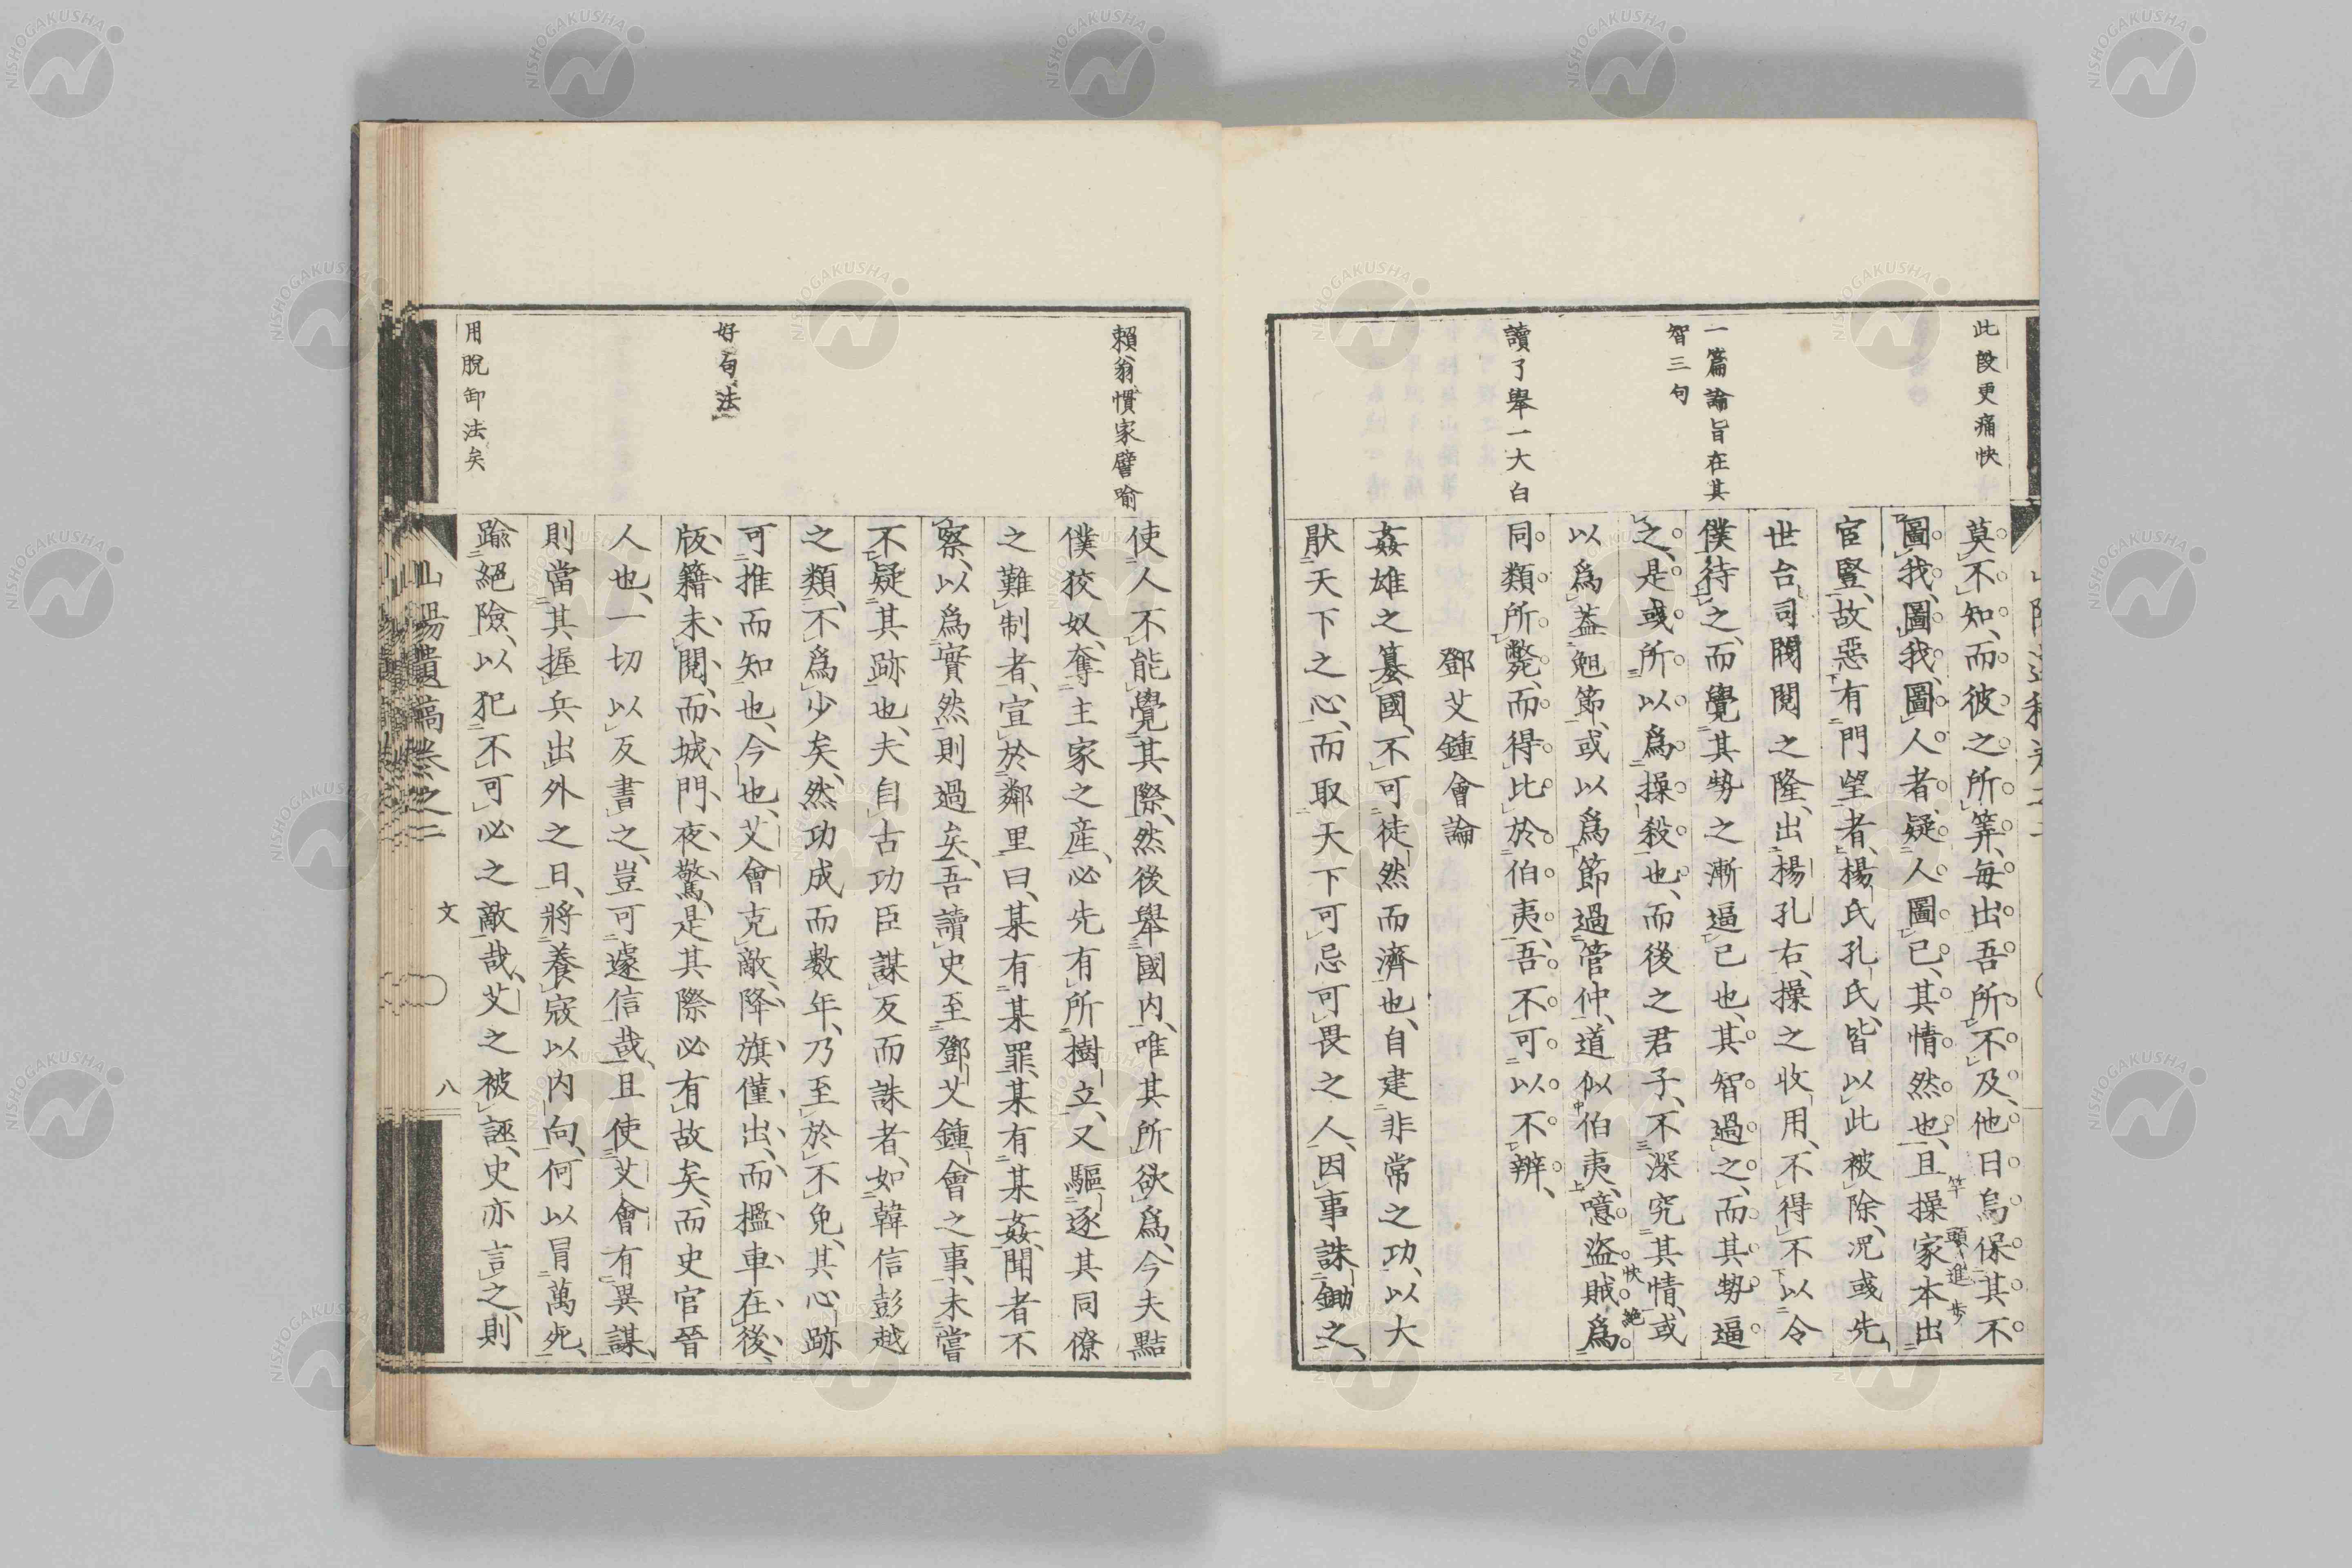 此段更痛快
一篇論旨在其
智三句
讀了舉一大白
莫不知、而彼之所筭、每出吾所不及、他日烏保其不
圖我、圖我、圖人者、疑人圖己、其情然也、且操家本出
竿頭進步
宦豎、故惡有門望者、楊氏孔氏、皆以此被除、况或先
世台司閥閱之隆、出楊孔右、操之收用、不得不以令
僕待之、而覺其勢之漸逼己也、其智過之、而其勢逼
之、是或所以爲操殺也、而後之君子、不深究其情、或
以爲蓋䰟節、或以爲節過管仲、道似伯夷、噫盜賊爲
快絶
同類所斃、而得比於伯夷、吾不可以不辨、
鄧艾鍾會論
姦雄之簒國、不可徒然而濟也、自建非常之功、以大
猒天下之心、而取天下可忌可畏之人、因事誅鋤之、
賴翁慣家譬喻
好句法
用脫卸法矣
使人不能覺其際、然後舉國内、唯其所欲爲、今夫黠
僕狡奴、奪主家之産、必先有所樹立、又驅逐其同僚
之難制者、宣於鄰里曰、某有某罪、某有某姦、聞者不
察、以爲實然、則過矣、吾讀史至鄧艾鍾會之事、未嘗
不疑其跡也、夫自古功臣謀反而誅者、如韓信彭越
之類、不爲少矣、然功成而数年、乃至於不免、其心跡
可推而知也、今也、艾會克敵、降旗僅出、而檻車在後、
版籍未閱、而城門夜驚、是其際必有故矣、而史官晉
人也、一切以反書之、豈可遽信哉、且使艾會有異謀、
則當其握兵出外之日、將養寇以内向、何以冒萬死、
踰絕險、以犯不可必之敵哉、艾之被誣、史亦言之、則
山陽遺稿卷之二
文
八
NISHOGAKUSHA